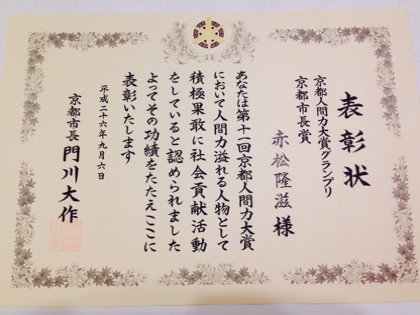 表彰状
京都人間力大賞グランプリ
京都市長賞
赤松隆滋様
あなたは第十一回京都人間力大賞
において人間力溢れる人物として
積極果敢に社会貢献活動
をしていると認められました
よってその功績をたたえここに
表彰いたします
平成二十六年九月六日
京都市長 門川大作